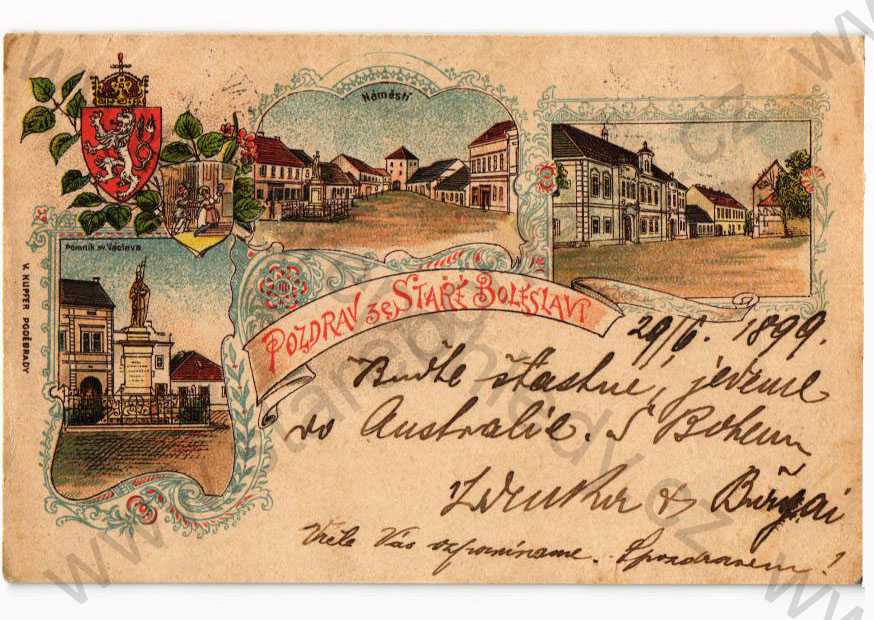 Náměstí
Pomník sv. Václava
V. KUPFER PODĚBRADY
POZDRAV ze STARÉ BOLESLAVI
29/6. 1899.
Buďte šťastné, jedeme
do Australie. S Bohem
Zdenka &
Vřele Vás vzpomínáme. S pozdravem!
www.stare-pohledy.cz